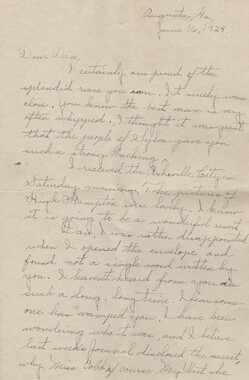 Augusta, Ga.
June 16, 1924
Dear Dave,
I certainly am proud of the
splendid race you ran. It surely was
close. You know the best man is very
often whipped. I thought it was great
that the people of Sylva gave you
such a strong backing.
I received the Asheville Citizen
Saturday morning & the pictures of
High Hampton were lovely. I know
it is going to be a wonderful resort.
Dave I was rather disappointed
when I opened the envelope and
found not a single word written by
you. I haven't heard from you in
such a long, long time. I hear some
one has vamped you. I have been
wondering who it was, and I believe
last week's Journal disclosed the secret,
why, Miss Cobb of course. May best she